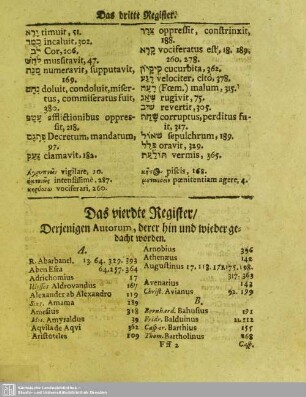 Das dritte Register.
ירא timuit, 51.
incaluit, 302.
לב Cor, 106.
לחש mussitavit, 47.
מנה numeravit, supputavit, 169.
נחם doluit, condoluit, misertus, commiseratus fuit, 380.
afflictionibus oppressit, 218.
פתגם Decretum, mandatum, 97.
צעק clamavit, 182.
צרר oppressit, constrinxit, 188.
קרא vociferatus est, 18. 189. 260. 278.
קיקיון cucurbita, 362.
רגע velociter, cito, 378.
רעה (Fœm.) malum, 315.
שאג rugivit, 75.
שוב revertit, 305.
שחת corruptus, perditus fuit, 317.
שאול sepulchrum, 189.
פלל oravit, 329.
תולעת vermis, 365.
vigilare, 10.
intensissimè, 287.
vociferari, 260.
piscis, 163.
pœnitentiam agere, 4.
Das vierdte Register/
Derjenigen Autorum, derer hin und wieder gedacht worden.
A.
R. Abarband, 13 64. 329. 393
Aben Esra 64. 257. 364
Adrichomius 17
Ulysses Aldrovandus 167
Alexander ab Alexandro 119
Sixt. Amama 139
Amesius 318
Mos. Amyraldus 39
Aquila de Aqvi 362
Aristoteles 209
Arnobius 396
Athenæus 142
Augustinus 17. 118. 172. 175. 198. 317. 363
Avenarius 143
Christ. Avianus 92. 199
B.
Bernhard. Bahusius 161
Fridr. Balduinus 21. 252
Casper. Barthius 155
Thom. Bartholinus 168
Fff 2
Casp.